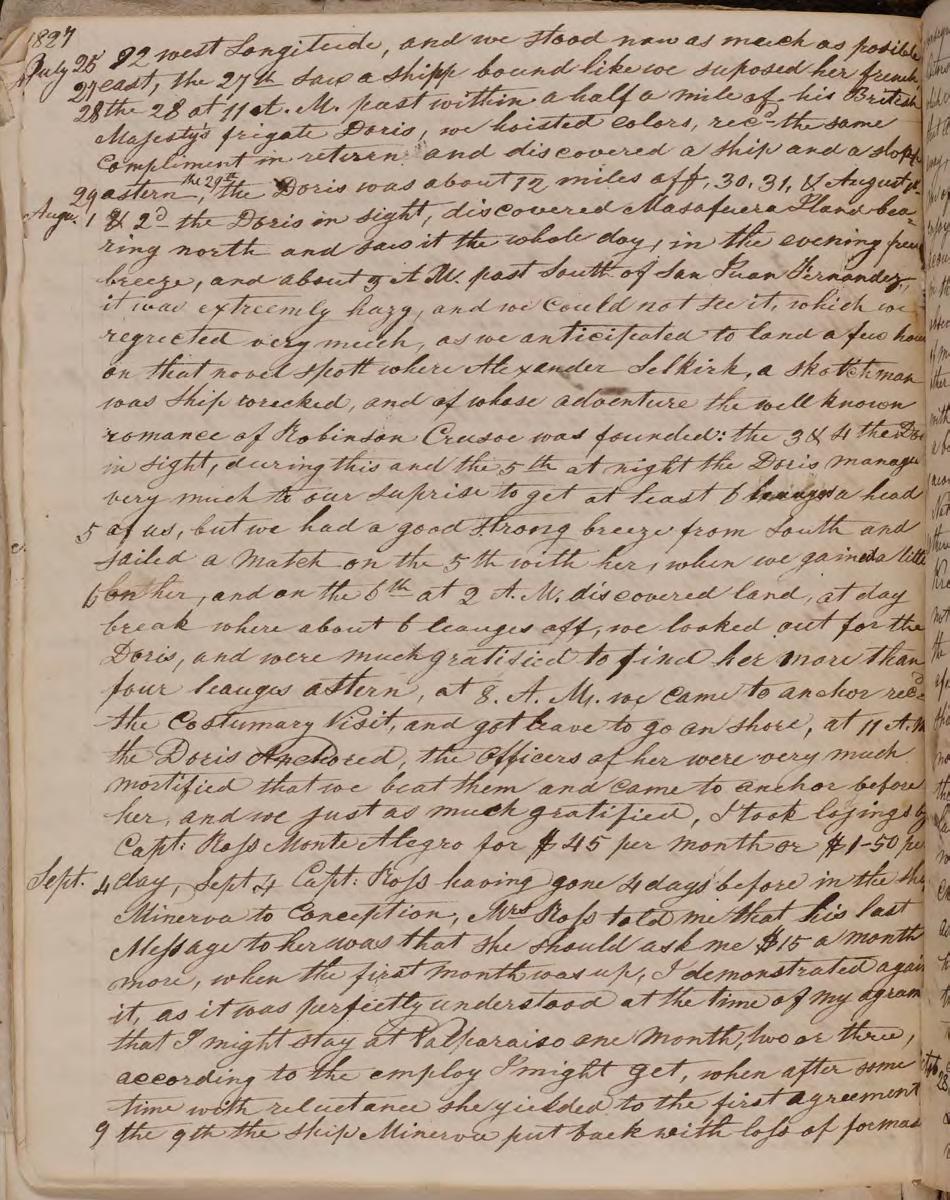 1827
July 25 92 west Longitude, and we stood now as much as posible
27 east, the 27th saw a shipp bound like we suposed her french
28 the 28 at 11 A. M. past within a half a mile of his British
Majesty's frigate Doris, we hoisted colors, recd the same
compliment in return and discovered a ship and a sloop
29 astern, the 29th the Doris was about 12 miles off, 30, 31, & August 1st
Augu. 1 & 2d the Doris in sight, discovered Masafuera Iland bea-
ring north and saw it the whole day, in the evening
breeze, and about 9 A M. past South of San Juan Fernandez,
it was extreemly hazy, and we could not see it, which we
regrected very much, as we anticipated to land a few hou
on that novel spott where Alexander Selkirk, a skotchman
was ship wrecked, and of whose adventure the well known
romance of Robinson Crusoe was founded: the 3 & 4 the Do
in sight, during this and the 5th at night the Doris manage
very much to our suprise to get at least 6 leauges a head
5 of us, but we had a good strong breeze from South and
sailed a match on the 5th with her, when we gained a little
6 on her, and on the 6th at 2 A. M. discovered land, at day
break where about 6 leauges off, we looked out for the
Doris, and were much gratified to find her more than
four leauges astern, at 8. A. M. we came to anchor recd
the Costumary Visit, and got leave to go on shore, at 11 A. M
the Doris Anchored, the Officers of her were very much
mortified that we beat them and came to anchor before
her, and we just as much gratified, I took lojings by
Capt: Ross Monte Alegro for $45 per month or $1-50 pe
Sept. 4 day, Sept 4 Capt: Ross having gone 4 days before in the shi
Minerva to Conception, Mrs Ross told me that his last
Message to her was that she should ask me $15 a month
more, when the first month was up, I demonstrated again
it, as it was perfectly understood at the time of my agrem
that I might stay at Valparaiso one month, two or three,
according to the employ I might get, when after some
time with reluctance she yielded to the first agreement
9 the 9th the ship Minerva put back with loss of formas